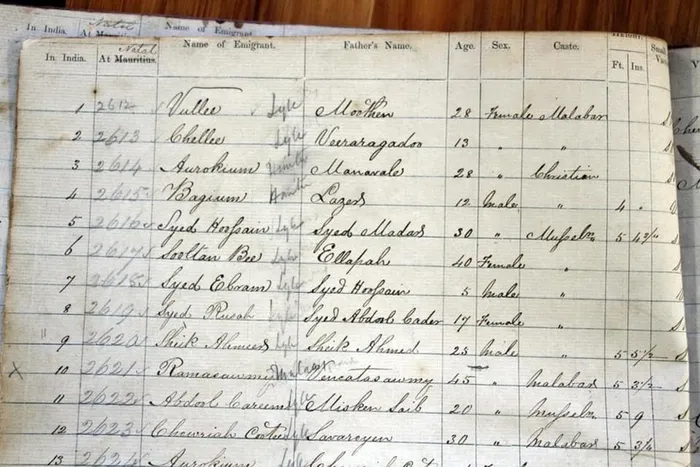 In India. Natal Name of Emigrant
HEIGHT.
In India. At Mauritius. Natal Name of Emigrant. Father's Name. Age. Sex. Caste. Ft. Ins.
1 2612 Vullee Lyle Moothen 28 Female Malabar
2 2613 Chellee Lyle Veeraragadoo 13 " "
3 2614 Aurokium Manavale 28 " Christian
4 2615 Bagium Lazer 12 Male " 4 "
5 2616 Syed Hoossain Lyle Syed Madar 30 " Musseln 5
6 2617 Sooltan Bee Lyle Ellapah 40 Female "
7 2618 Syed Ebram Lyle Syed Hoossain 5 Male "
8 2619 Syed Rusah Lyle Syed Abdool Cader 17 Female "
9 2620 Sheik Ahmed Lyle Sheik Ahmed 25 Male " 5 5½
x 10 2621 Ramasawmy Vencatasawmy 45 " Malabar 5 3½
11 2622 Abdool Careem Lyle Misken Saib 20 " Musseln 5 9
12 2623 Chewriah Lyle Savareyen 30 " Malabar 5
13 Aurokium